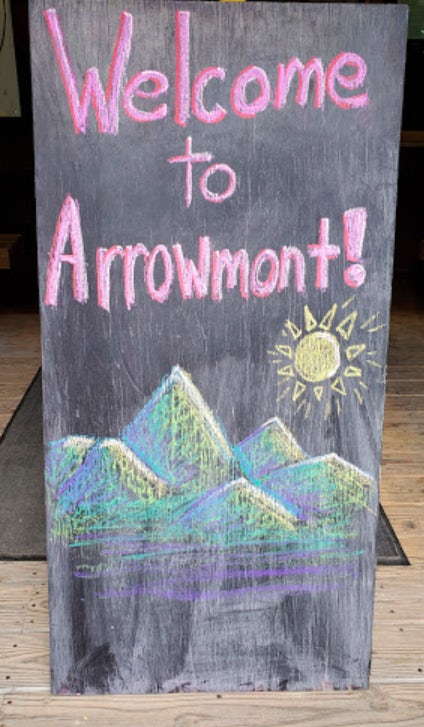 Welcome
to
Arrowmont!